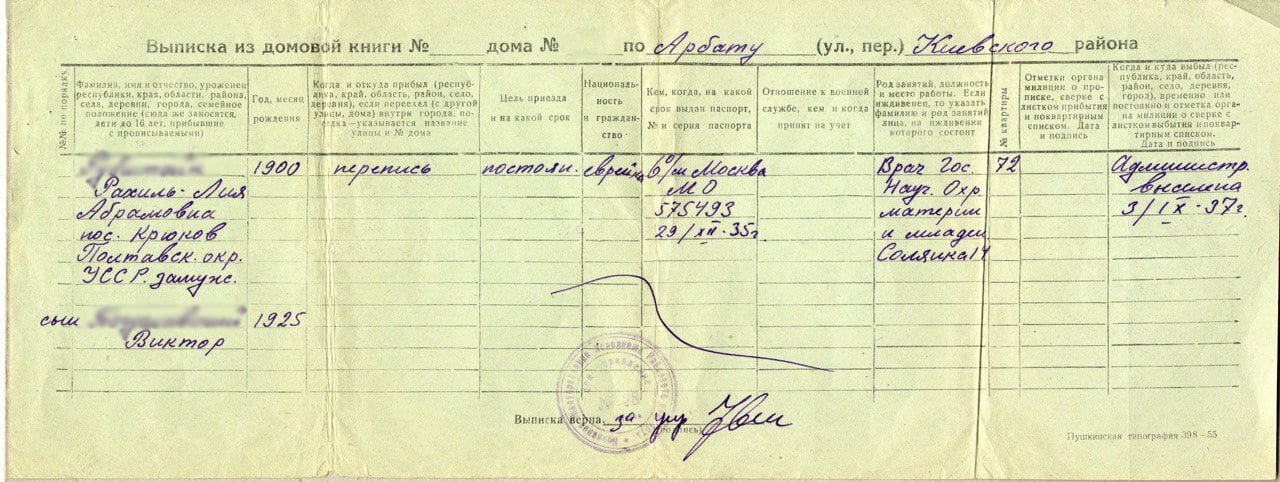 Выписка из домовой книги № дома № по Арбату (ул., пер.) Киевского района
№№ по порядку
Фамилия, имя и отчество, уроженец
республики, края, области, района,
села, деревни, города, семейное
положение (сюда же заносятся,
дети до 16 лет, прибывшие
с прописываемыми)
Год, месяц
рождения
Когда и откуда прибыл (респуб-
лика, край, область, район, село,
деревня), если переехал (с другой
улицы, дома) внутри города, по-
селка—указывается название
улицы и № дома
Цель приезда
и на какой срок
Националь-
ность
и граждан-
ство
Кем, когда, на какой
срок выдан паспорт,
№ и серия паспорта
Отношение к военной
службе, кем и когда
принят на учет
Род занятий, должность
и место работы. Если
иждивенец, то указать
фамилию и род занятий
лица, на иждивении
которого состоит
№ квартиры
Отметки органа
милиции о про-
писке, сверке с
листком прибытия
и поквартирным
списком. Дата
и подпись
Когда и куда выбыл (рес-
публика, край, область,
район, село, деревня,
город), временно или
постоянно и отметка орга-
на милиции о сверке с
листком выбытия и поквар-
тирным списком.
Дата и подпись
1900 перепись постоян. еврейка б/см Москва Врач Гос. 72 Администр.
Рахиль-Лия МО Науч. Охр. выселена
Абрамовна 575493 матери 3/IX-37г.
пос. Крюков 29/XII-35г и младен
Полтавск. окр. Солянка 14
УССР. замуж.
сын 1925
Виктор
Выписка верна. за упр
(подпись)
Пушкинская типография 398—55